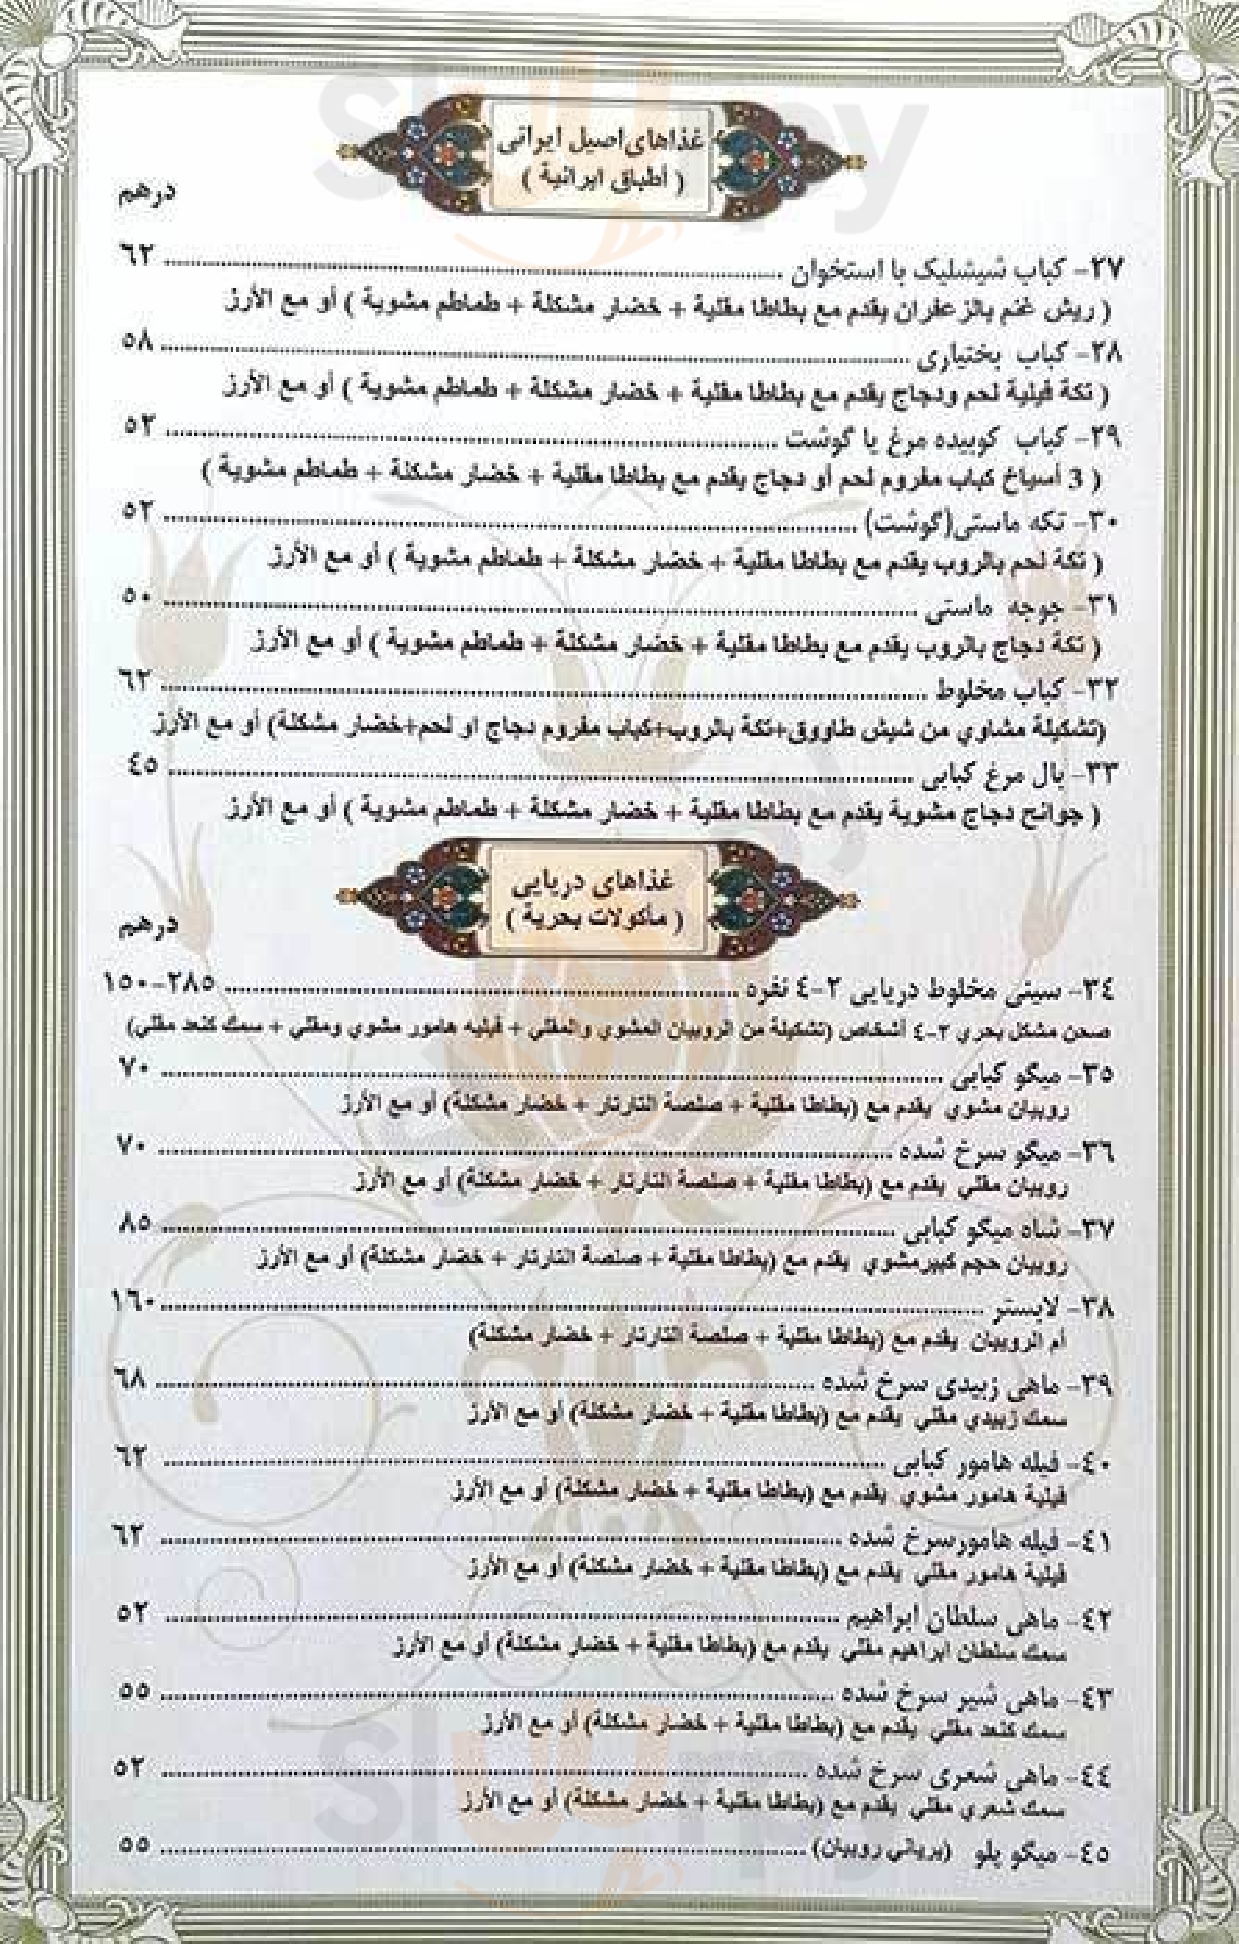 غذاهای اصیل ایرانی
( أطباق ايرانية )
درهم
٢٧- کباب شیشلیک با استخوان ........ ٦٢
( ريش غنم بالزعفران يقدم مع بطاطا مقلية + خضار مشكلة + طماطم مشوية ) أو مع الأرز
٢٨- کباب بختیاری ........ ٥٨
( تكة فيلية لحم ودجاج يقدم مع بطاطا مقلية + خضار مشكلة + طماطم مشوية ) أو مع الأرز
٢٩- کباب کوبیده مرغ یا گوشت ........ ٥٢
( 3 أسياخ كباب مفروم لحم أو دجاج يقدم مع بطاطا مقلية + خضار مشكلة + طماطم مشوية )
٣٠- تکه ماستی(گوشت) ........ ٥٢
( تكة لحم بالروب يقدم مع بطاطا مقلية + خضار مشكلة + طماطم مشوية ) أو مع الأرز
٣١- جوجه ماستی ........ ٥٠
( تكة دجاج بالروب يقدم مع بطاطا مقلية + خضار مشكلة + طماطم مشوية ) أو مع الأرز
٣٢- کباب مخلوط ........ ٦٢
(تشكيلة مشاوي من شيش طاووق+تكة بالروب+كباب مفروم دجاج او لحم+خضار مشكلة) أو مع الأرز
٣٣- بال مرغ کبابی ........ ٤٥
( جوانح دجاج مشوية يقدم مع بطاطا مقلية + خضار مشكلة + طماطم مشوية ) أو مع الأرز
غذاهای دریایی
( مأكولات بحرية )
درهم
٣٤- سینی مخلوط دریایی ٢-٤ نفره ........ ٢٨٥-١٥٠
صحن مشكل بحري ٢-٤ أشخاص (تشكيلة من الروبيان المشوي والمقلي + فيليه هامور مشوي ومقلي + سمك كنعد مقلي)
٣٥- میگو کبابی ........ ٧٠
روبيان مشوي يقدم مع (بطاطا مقلية + صلصة التارتار + خضار مشكلة) أو مع الأرز
٣٦- میگو سرخ شده ........ ٧٠
روبيان مقلي يقدم مع (بطاطا مقلية + صلصة التارتار + خضار مشكلة) أو مع الأرز
٣٧- شاه میگو کبابی ........ ٨٥
روبيان حجم كبيرمشوي يقدم مع (بطاطا مقلية + صلصة التارتار + خضار مشكلة) أو مع الأرز
٣٨- لابستر ........ ١٦٠
أم الروبيان يقدم مع (بطاطا مقلية + صلصة التارتار + خضار مشكلة)
٣٩- ماهی زبیدی سرخ شده ........ ٦٨
سمك زبيدي مقلي يقدم مع (بطاطا مقلية + خضار مشكلة) أو مع الأرز
٤٠- فیله هامور کبابی ........ ٦٢
فيلية هامور مشوي يقدم مع (بطاطا مقلية + خضار مشكلة) أو مع الأرز
٤١- فیله هامورسرخ شده ........ ٦٢
فيلية هامور مقلي يقدم مع (بطاطا مقلية + خضار مشكلة) أو مع الأرز
٤٢- ماهی سلطان ابراهیم ........ ٥٢
سمك سلطان ابراهيم مقلي يقدم مع (بطاطا مقلية + خضار مشكلة) أو مع الأرز
٤٣- ماهی شیر سرخ شده ........ ٥٥
سمك كنعد مقلي يقدم مع (بطاطا مقلية + خضار مشكلة) أو مع الأرز
٤٤- ماهی شعری سرخ شده ........ ٥٢
سمك شعري مقلي يقدم مع (بطاطا مقلية + خضار مشكلة) أو مع الأرز
٤٥- میگو پلو (برياني روبيان) ........ ٥٥
Sluurpy
Sluurpy